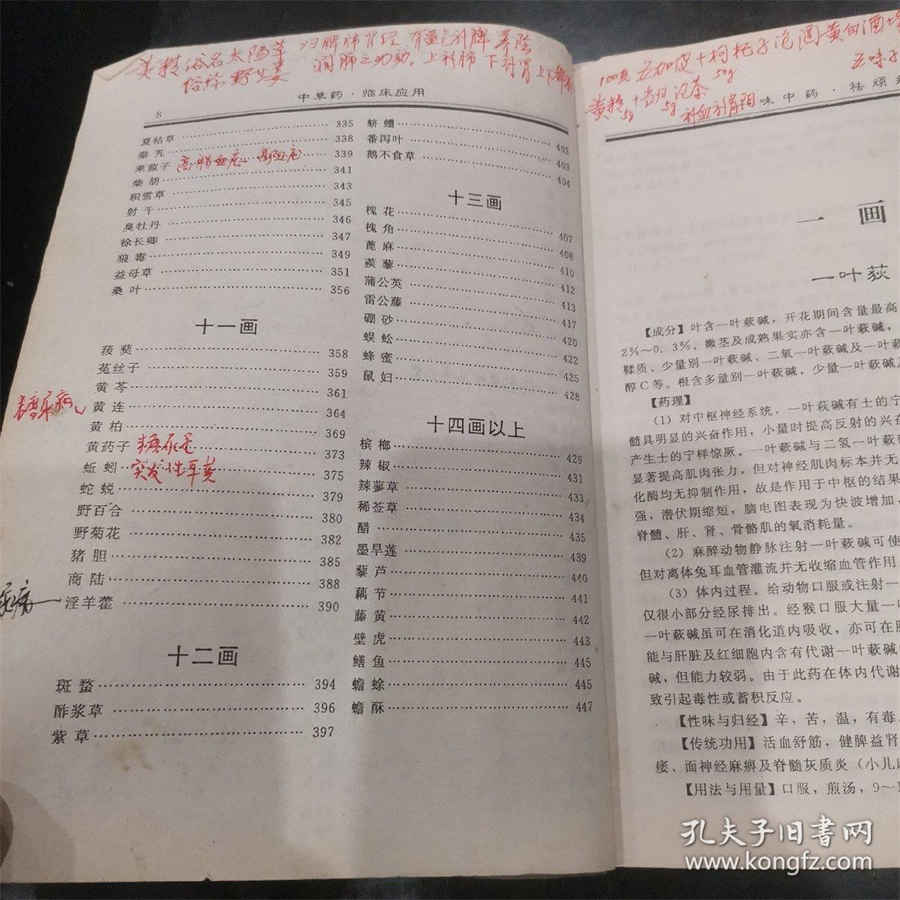 黄精 俗名太阳草
俗称野生姜
归脾肺肾经 有益气补脾 养阴
润肺之功效。上补肺 下补肾
8
中草药·临床应用
夏枯草 335
秦艽 338
来菔子 339
高
柴胡 341
积雪草 343
射干 345
臭牡丹 346
徐长卿 347
狼毒 349
益母草 351
桑叶 356
十一画
菝葜 358
菟丝子 359
黄芩 361
糖尿病
黄连 364
黄柏 369
黄药子 373
糖尿病
蚯蚓 375
突发性耳聋
蛇蜕 379
野百合 380
野菊花 382
猪胆 385
商陆 388
尿病
淫羊藿 390
十二画
斑蝥 394
酢浆草 396
紫草 397
蛴螬 402
番泻叶 403
鹅不食草 404
十三画
槐花 407
槐角 408
蓖麻 410
蒺藜 412
蒲公英 413
雷公藤 417
硼砂 420
蜈蚣 422
蜂蜜 425
鼠妇 428
十四画以上
槟榔 429
辣椒 431
辣蓼草 433
稀莶草 434
醋 435
墨旱莲 439
藜芦 440
藕节 441
藤黄 442
壁虎 443
鳝鱼 445
蟾蜍 445
蟾酥 447
100克 五加皮+枸杞子泡酒
50g
黄精+当归 泡茶
5g 5g
五味子
味中药·祛顽
一画
一叶萩
【成分】叶含一叶萩碱，开花期间含量最高
2%～0.3%。嫩茎及成熟果实亦含一叶萩碱，
鞣质、少量别一叶萩碱、二氢一叶萩碱及一叶萩
醇C等。根含多量别一叶萩碱，少量一叶萩碱
【药理】
（1）对中枢神经系统，一叶萩碱有士的宁
髓具明显的兴奋作用，小量时提高反射的兴奋
产生士的宁样惊厥。一叶萩碱与二氢一叶萩
显著提高肌肉张力，但对神经肌肉标本并无
化酶均无抑制作用，故是作用于中枢的结果
强，潜伏期缩短，脑电图表现为快波增加，
脊髓、肝、肾、骨骼肌的氧消耗量。
（2）麻醉动物静脉注射一叶萩碱可使
但对离体兔耳血管灌流并无收缩血管作用
（3）体内过程。给动物口服或注射一
仅很小部分经尿排出。经猴口服大量一
一叶萩碱虽可在消化道内吸收，亦可在
能与肝脏及红细胞内含有代谢一叶萩碱
碱，但能力较弱。由于此药在体内代谢
致引起毒性或蓄积反应。
【性味与归经】辛，苦，温，有毒。
【传统功用】活血舒筋，健脾益肾
痿、面神经麻痹及脊髓灰质炎（小儿
【用法与用量】口服，煎汤，9～1
孔夫子旧书网
www.kongfz.com